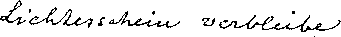 Lichterschein verbleibe